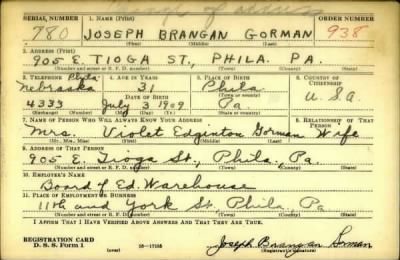 Change of address
SERIAL NUMBER 1. NAME (Print) ORDER NUMBER
780 JOSEPH BRANGAN GORMAN 938
(First) (Middle) (Last)
2. ADDRESS (Print)
905 E. TIOGA ST., PHILA. PA.
(Number and street or R. F. D. number) (Town) (County) (State)
3. TELEPHONE 4. AGE IN YEARS 5. PLACE OF BIRTH 6. COUNTRY OF CITIZENSHIP
Phila
Nebraska 31 Phila.
DATE OF BIRTH (Town or county) U.S.A
4333 July 3 1909 Pa.
(Exchange) (Number) (Mo.) (Day) (Yr.) (State or country)
7. NAME OF PERSON WHO WILL ALWAYS KNOW YOUR ADDRESS 8. RELATIONSHIP OF THAT PERSON
Mrs. Violet Edginton Gorman Wife
(Mr., Mrs., Miss) (First) (Middle) (Last)
9. ADDRESS OF THAT PERSON
905 E. Tioga St., Phila., Pa.
(Number and street or R. F. D. number) (Town) (County) (State)
10. EMPLOYER'S NAME
Board of Ed. Warehouse
11. PLACE OF EMPLOYMENT OR BUSINESS
11th and York St. Phila. Pa
(Number and street or R. F. D. number) (Town) (County) (State)
I AFFIRM THAT I HAVE VERIFIED ABOVE ANSWERS AND THAT THEY ARE TRUE.
REGISTRATION CARD
D. S. S. Form 1 (over) 16—17105 Joseph Brangan Gorman
(Registrant's signature)